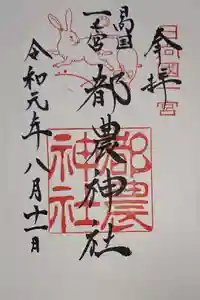 奉拝
日向國一之宮
日向国
一之宮
都農神社
都農神社
令和元年八月十一日